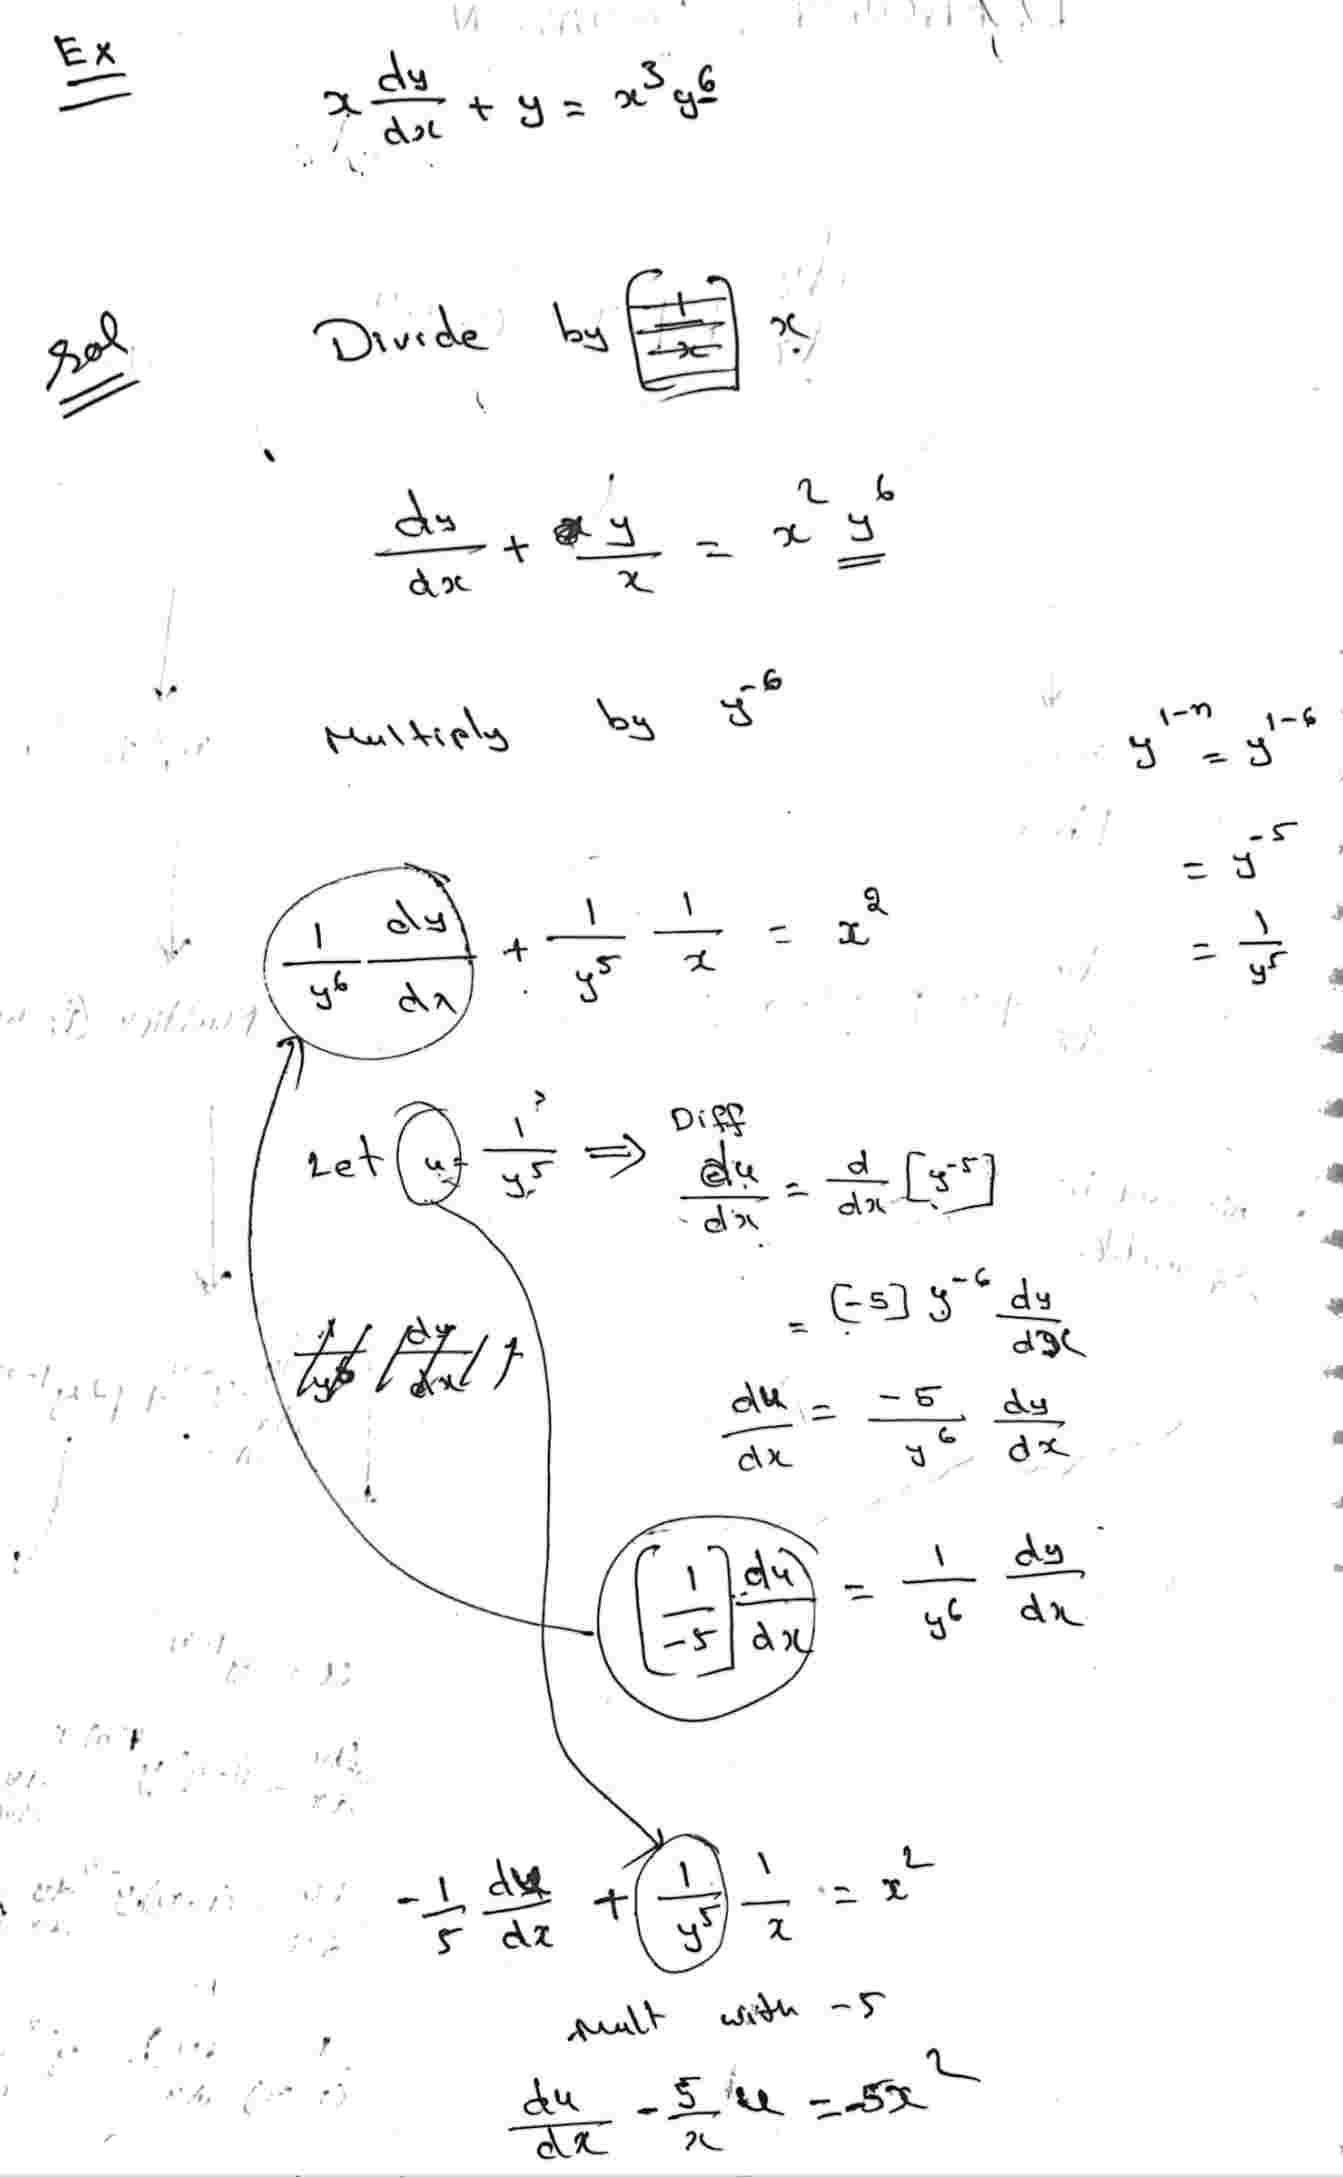 Ex
x dy/dx + y = x³ y⁶
Sol
Divide by x
dy/dx + y/x = x² y⁶
Multiply by y⁻⁶
y¹⁻ⁿ = y¹⁻⁶
= y⁻⁵
= 1/y⁵
1/y⁶ dy/dx + 1/y⁵ 1/x = x²
Let u = 1/y⁵ ⇒ Diff
du/dx = d/dx [y⁻⁵]
= [-5] y⁻⁶ dy/dx
du/dx = -5/y⁶ dy/dx
[1/-5] du/dx = 1/y⁶ dy/dx
-1/5 du/dx + 1/y⁵ 1/x = x²
Mult with -5
du/dx - 5/x u = -5x²